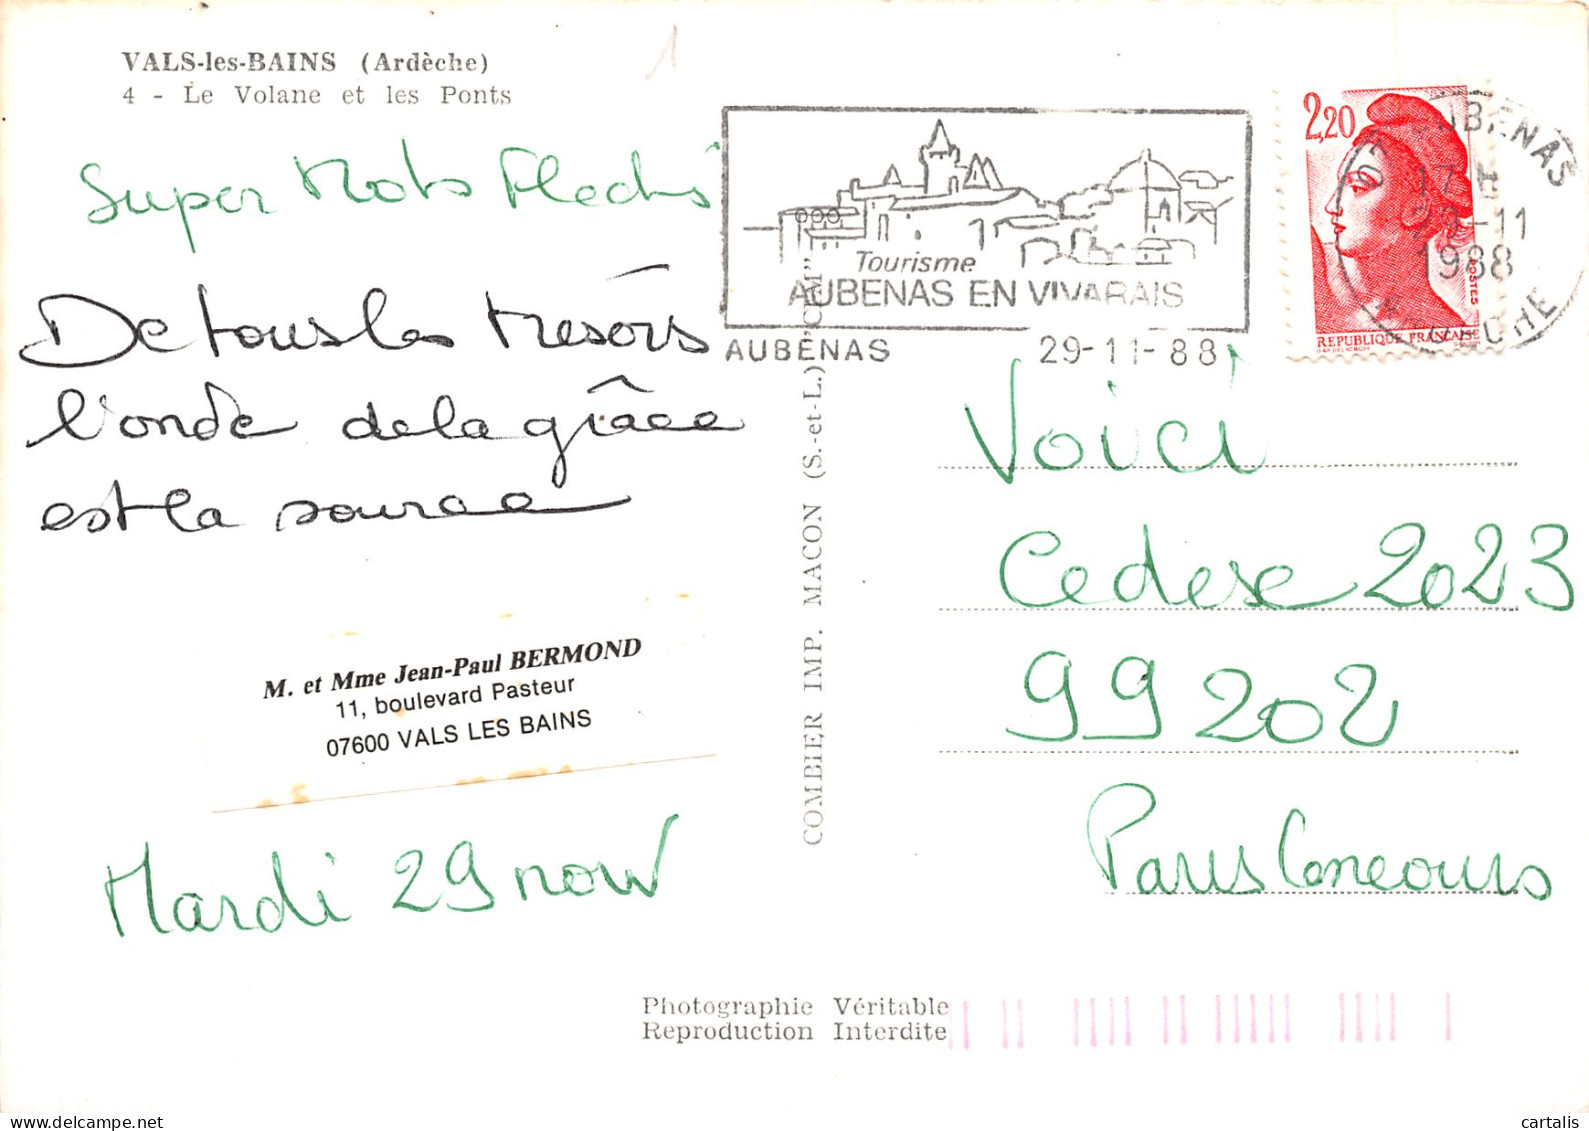 VALS-les-BAINS (Ardèche)
4 - Le Volane et les Ponts
Super Mots Flechés
De tous les trésors
l'onde de la grâce
est la source
M. et Mme Jean-Paul BERMOND
11, boulevard Pasteur
07600 VALS LES BAINS
Mardi 29 nov
COMBIER IMP. MACON (S.-et-L.) "CIM"
Tourisme
AUBENAS EN VIVARAIS
AUBENAS 29-11-88
2,20
POSTES
REPUBLIQUE FRANÇAISE
AUBENAS
17 H
29-11
1988
ARDECHE
Voici
Cedese 2023
99202
Paris Concours
Photographie Véritable
Reproduction Interdite
cartalis